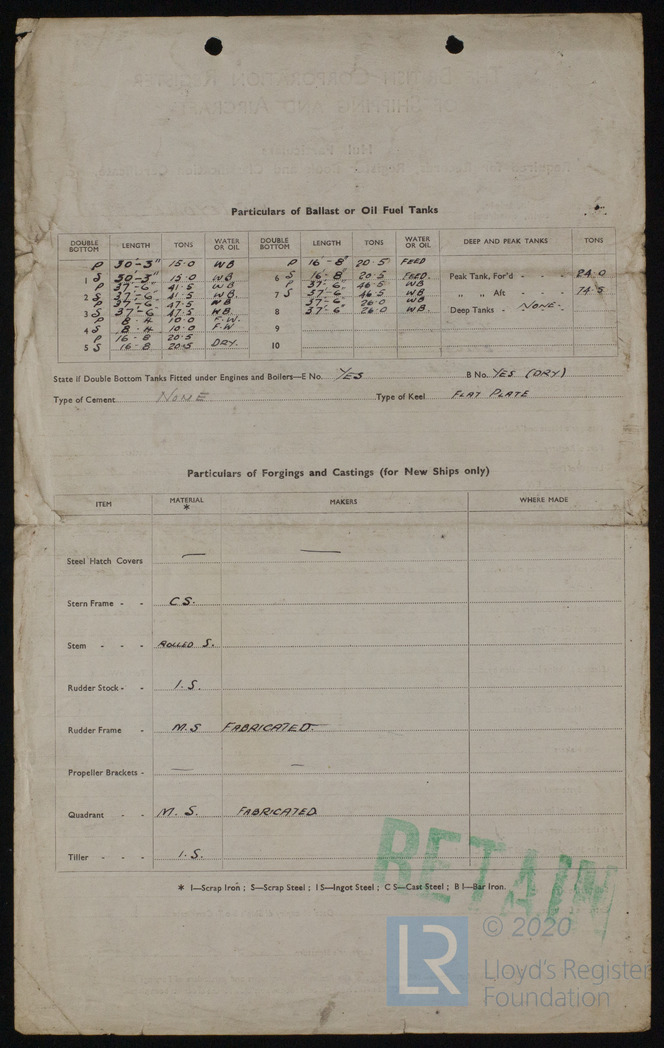 Particulars of Ballast or Oil Fuel Tanks
DOUBLE BOTTOM LENGTH TONS WATER OR OIL DOUBLE BOTTOM LENGTH TONS WATER OR OIL DEEP AND PEAK TANKS TONS
P 30'-3" 15.0 WB P 16'-8" 20.5 FEED
1 S 30'-3" 15.0 WB 6 S 16'-8" 20.5 FEED. Peak Tank, For'd - - - 24.0
P 37'-6" 41.5 WB P 37'-6" 46.5 WB
2 S 37'-6 41.5 WB. 7 S 37'-6" 46.5 WB „ „ Aft - - - 74.5
P 37'-6 47.5 WB 37'-6" 26.0 WB
3 S 37'-6 47.5 WB. 8 37'-6" 26.0 WB. Deep Tanks - - NONE -
P 8'-4 10.0 F.W.
4 S 8'-4 10.0 F.W 9
P 16'-8 20.5
5 S 16'-8 20.5 DRY. 10
State if Double Bottom Tanks Fitted under Engines and Boilers—E No. YES B No. YES (DRY)
Type of Cement NONE Type of Keel FLAT PLATE
Particulars of Forgings and Castings (for New Ships only)
ITEM MATERIAL * MAKERS WHERE MADE
Steel Hatch Covers — —
Stern Frame - - C.S.
Stem - - - ROLLED S.
Rudder Stock - - I.S.
Rudder Frame - M.S FABRICATED.
Propeller Brackets - — —
Quadrant - - M.S. FABRICATED
Tiller - - - I.S.
* I—Scrap Iron ; S—Scrap Steel ; I S—Ingot Steel ; C S—Cast Steel ; B I—Bar Iron.
RETAIN
LR © 2020
Lloyd's Register
Foundation